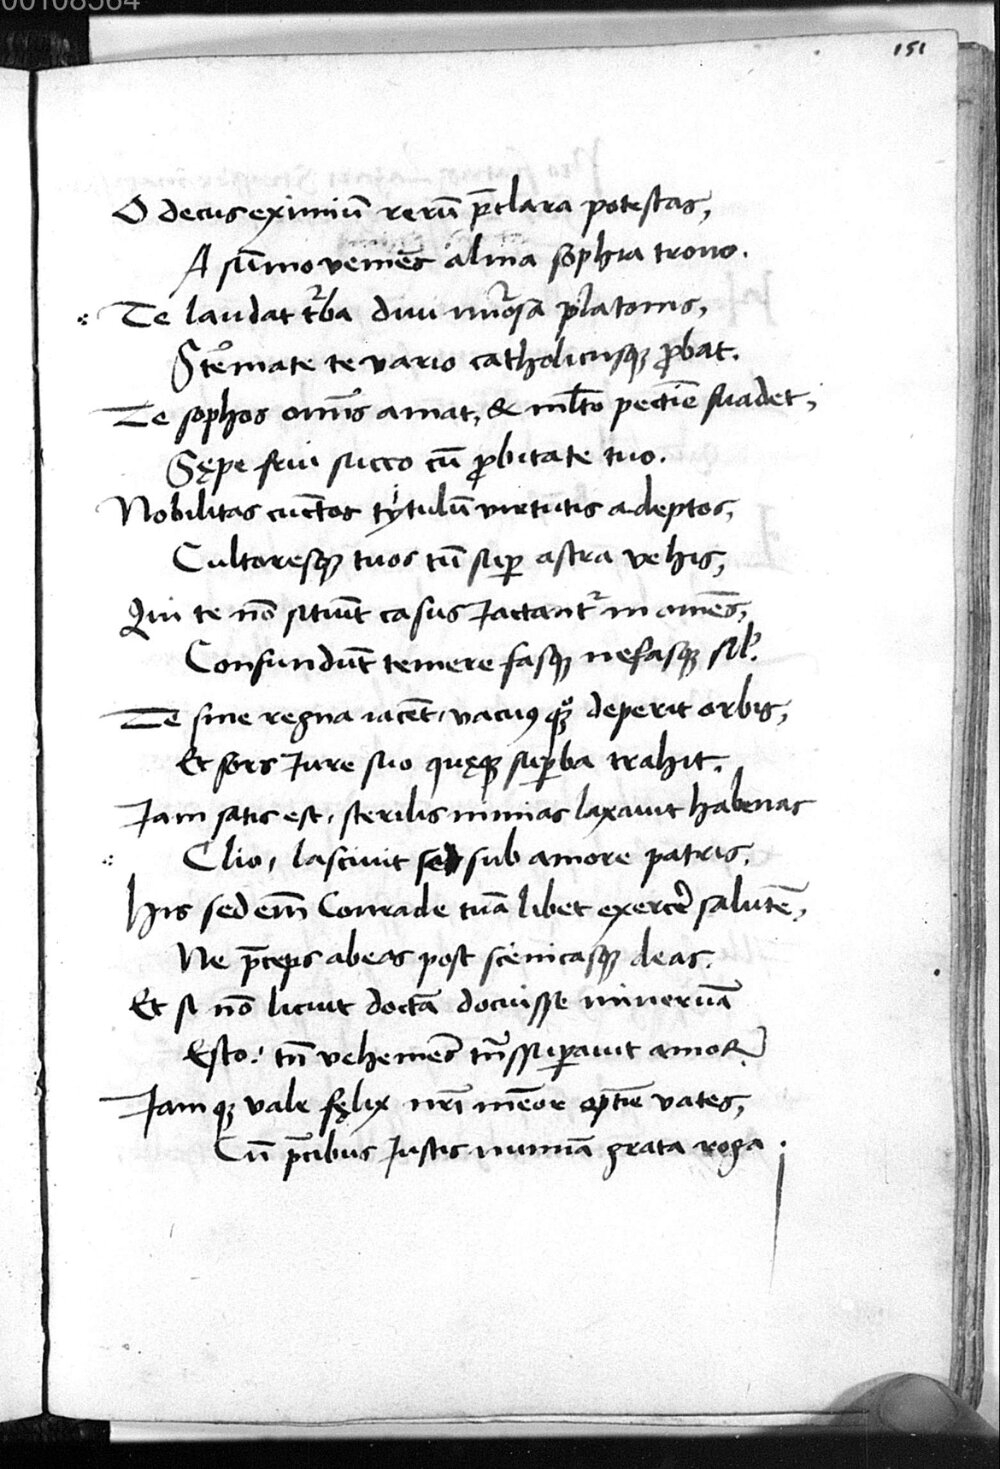 00108564
151
O decus eximiũ rerũ p̄clara potestas,
A sũmo veniẽs alma sophia trono.
Te laudat tᷣba diui nũosa platonis,
Stẽmate te vario catholicusqꝫ ꝓbat.
Te sophos om̃is amat, & ml̃to pectĩe suadet,
Sępe frui succo cũ ꝓbitate tuo.
Nobilitas cũctos tytulũ virtutis adeptos,
Cultoresqꝫ tuos tũ suꝑ astra vehis,
Qui te nõ sitiũt casus Jactantᷣ in omẽs,
Confundũt temere fasqꝫ nefasqꝫ sil̃.
Te sine regna iacẽt, vacuꝰ qꝫ deperit orbis,
Et fors Jure suo quęqꝫ suꝑba trahit.
Jam satis est, sterilis nimias laxauit habenas
Clio, lasciuit sub amore patris.
His sed em̃ Conrade tuã libet exercẽ salutẽ,
Ne p̄ceps abeas post scenicasqꝫ deas.
Et si nõ licuit doctã docuisse mineruã
Esto: tñ vehemẽs suꝑauit amor
Jamqꝫ vale fęlix nr̃i mẽor optĩe vates,
Cũ p̄cibus Justis numiã grata roga.